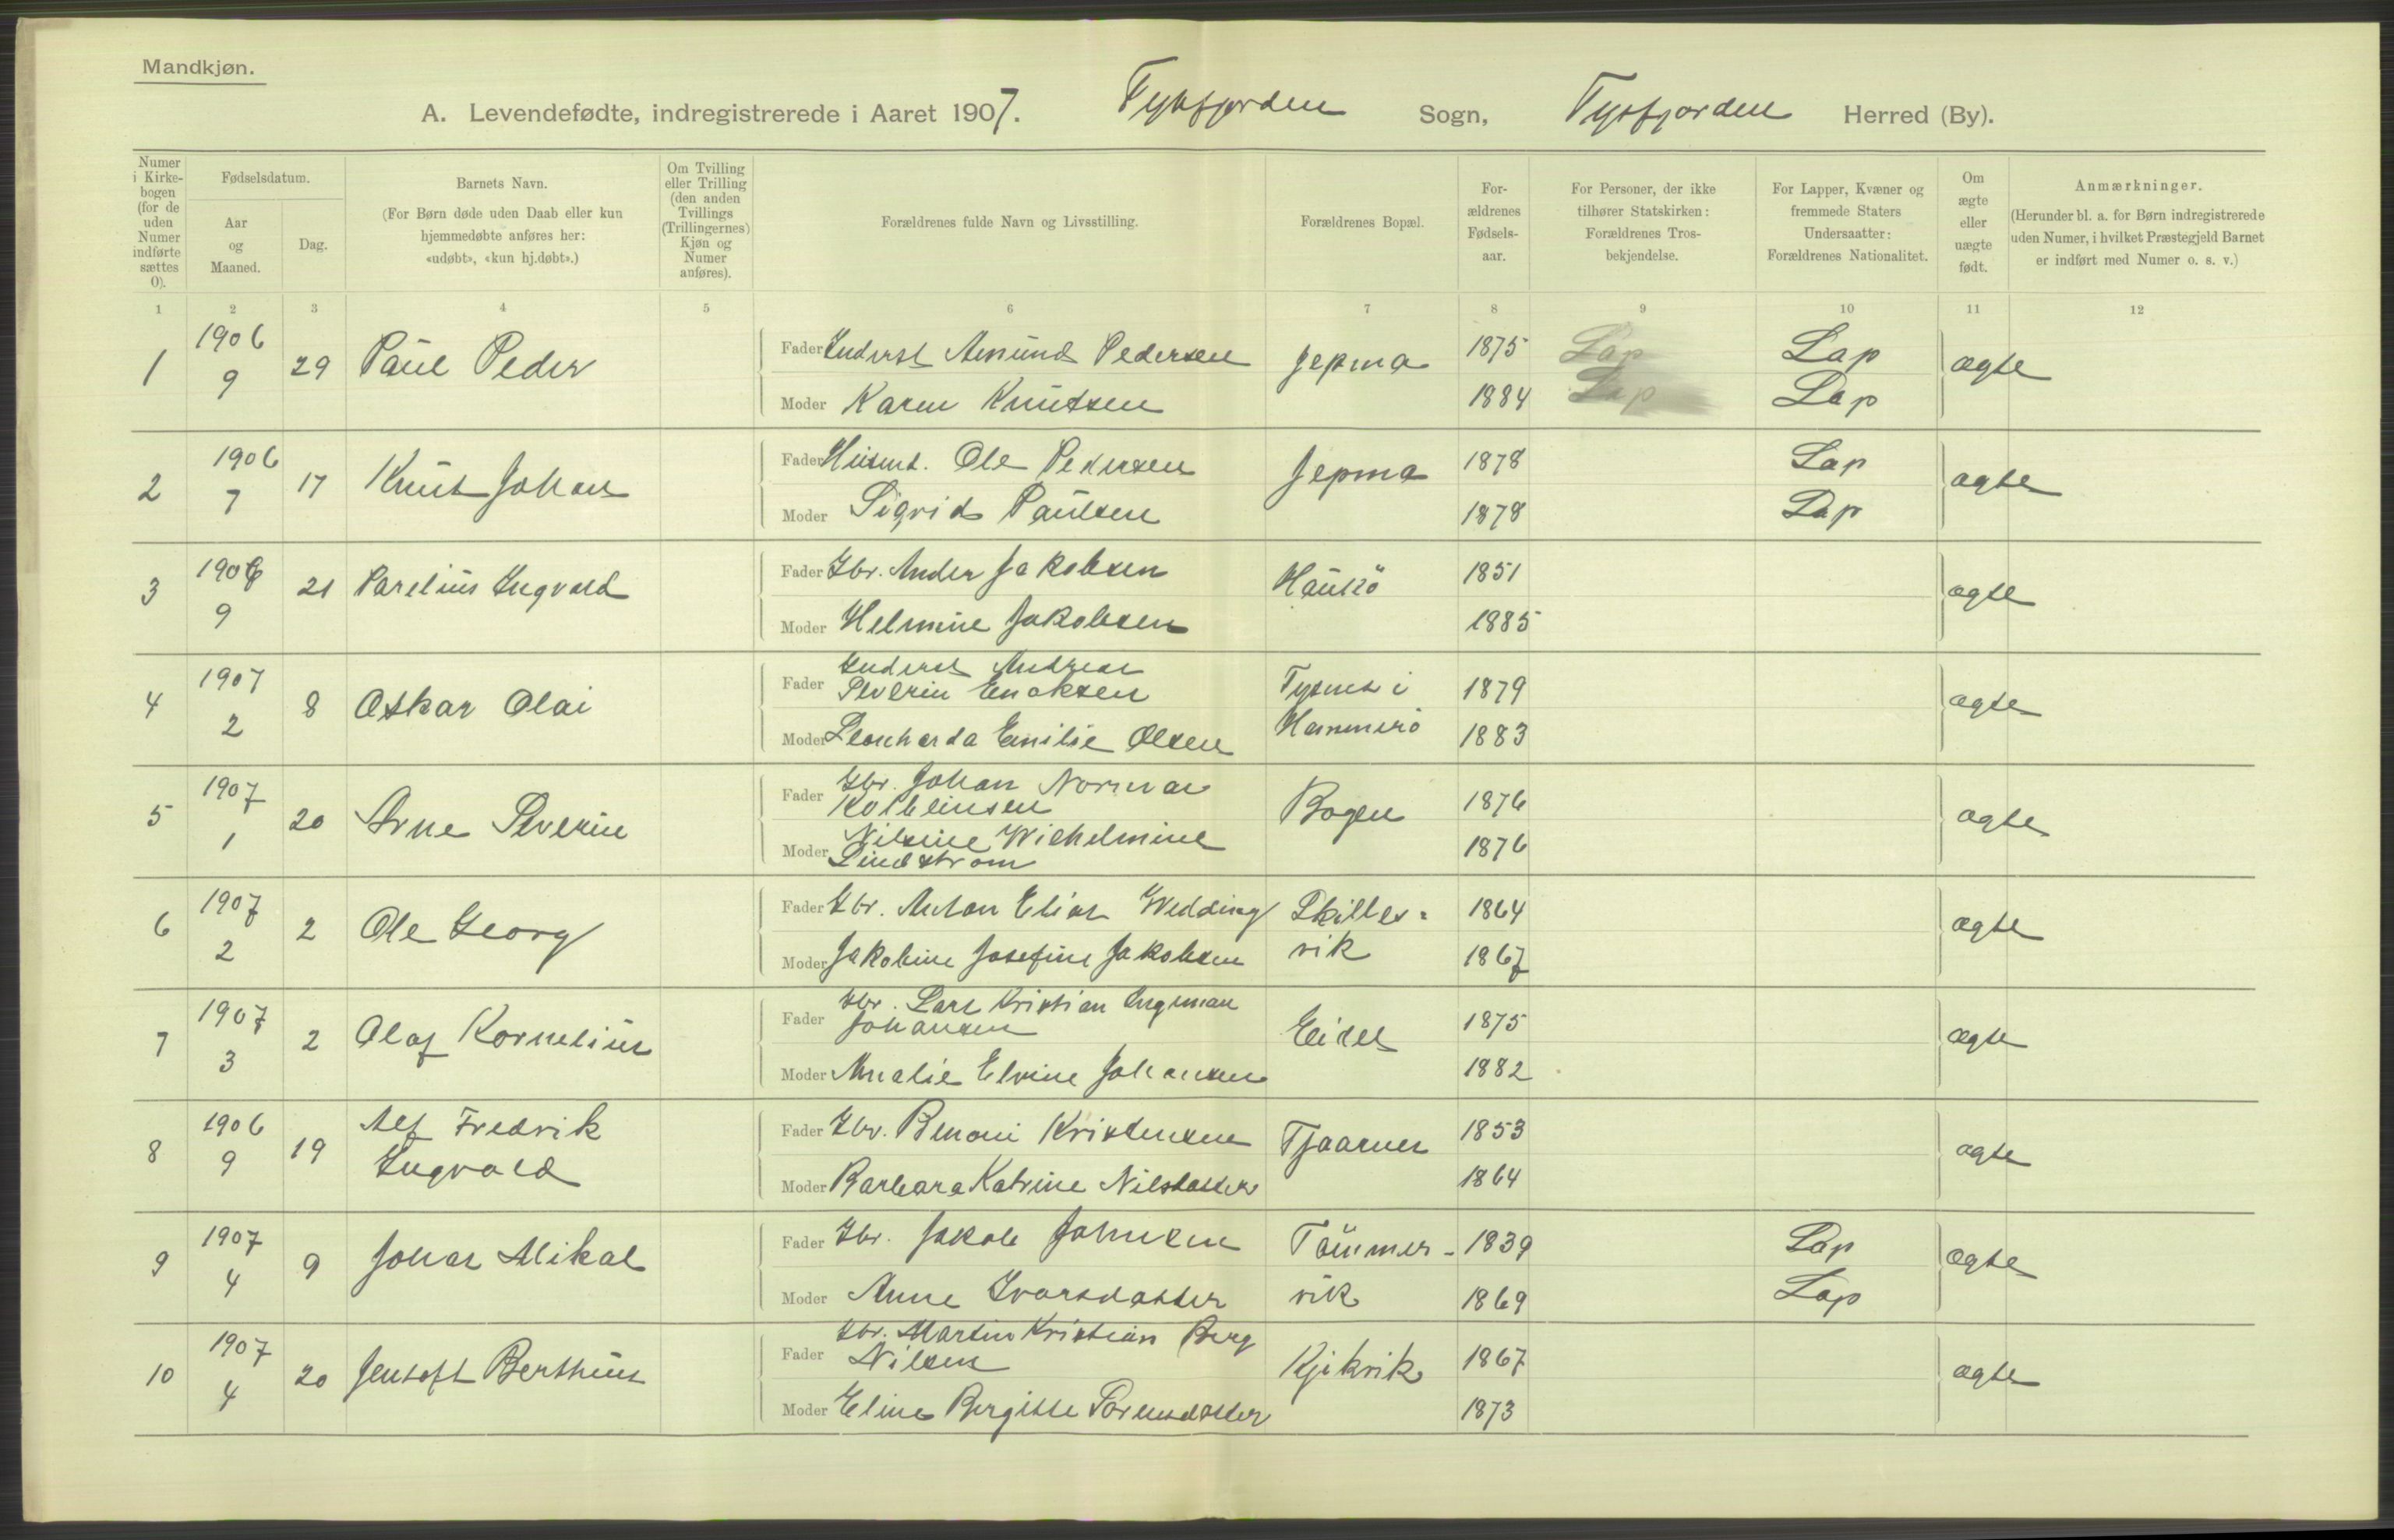 Mandkjøn.
A. Levendefødte, indregistrerede i Aaret 1907. Tysfjorden Sogn, Tysfjorden Herred (By).
Numer i Kirke-bogen (for de uden Numer indførte sættes 0).
Fødselsdatum.
Aar og Maaned.
Dag.
Barnets Navn.
(For Børn døde uden Daab eller kun hjemmedøbte anføres her: «udøbt», «kun hj.døbt».)
Om Tvilling eller Trilling (den anden Tvillings (Trillingernes) Kjøn og Numer anføres).
Forældrenes fulde Navn og Livsstilling.
Forældrenes Bopæl.
For-ældrenes Fødsels-aar.
For Personer, der ikke tilhører Statskirken: Forældrenes Tros-bekjendelse.
For Lapper, Kvæner og fremmede Staters Undersaatter: Forældrenes Nationalitet.
Om ægte eller uægte født.
Anmærkninger.
(Herunder bl. a. for Børn indregistrerede uden Numer, i hvilket Præstegjeld Barnet er indført med Numer o. s. v.)
1 2 3 4 5 6 7 8 9 10 11 12
1 1906 9 29 Paul Peder
Fader Inderst Amund Pedersen Jepma 1875 Lap Lap ægte
Moder Karen Knutsen 1884 Lap Lap
2 1906 7 17 Knut Johan
Fader Husmd. Ole Pedersen Jepma 1878 Lap ægte
Moder Sigrid Paulsen 1878 Lap
3 1906 9 21 Parelius Ingvald
Fader Gbr. Ander Jakobsen Haukö 1851 ægte
Moder Helmine Jakobsen 1885
4 1907 2 8 Oskar Olai
Fader Inderst Andreas
Severin Enoksen Tysnes i 1879 ægte
Moder Leonharda Emilie Olsen Hammerö 1883
5 1907 1 20 Arne Severin
Fader Gbr. Johan Norman
Kolbeinsen Bogen 1876 ægte
Moder Nilsine Wilhelmine
Lindstrøm 1876
6 1907 2 2 Ole Georg
Fader Gbr. Anton Elias Wedding Skilles- 1864 ægte
Moder Jakobine Josefine Jakobsen vik 1867
7 1907 3 2 Olaf Kornelius
Fader Gbr. Lars Kristian Ingman
Johansen Eidet 1875 ægte
Moder Amalie Elvine Johansen 1882
8 1906 9 19 Alf Fredrik
Ingvald
Fader Gbr. Benoni Kristensen Tjaarnes 1853 ægte
Moder Barbara Katrine Nilsdatter 1864
9 1907 4 9 Johan Mikal
Fader Gbr. Jakob Johnsen Tömmer- 1839 Lap ægte
Moder Anne Ivarsdatter vik 1869 Lap
10 1907 4 20 Jentoft Bertheus
Fader Gbr. Martin Kristian Berg
Nilsen Kjikvik 1867 ægte
Moder Eline Bergitte Sørensdatter 1873